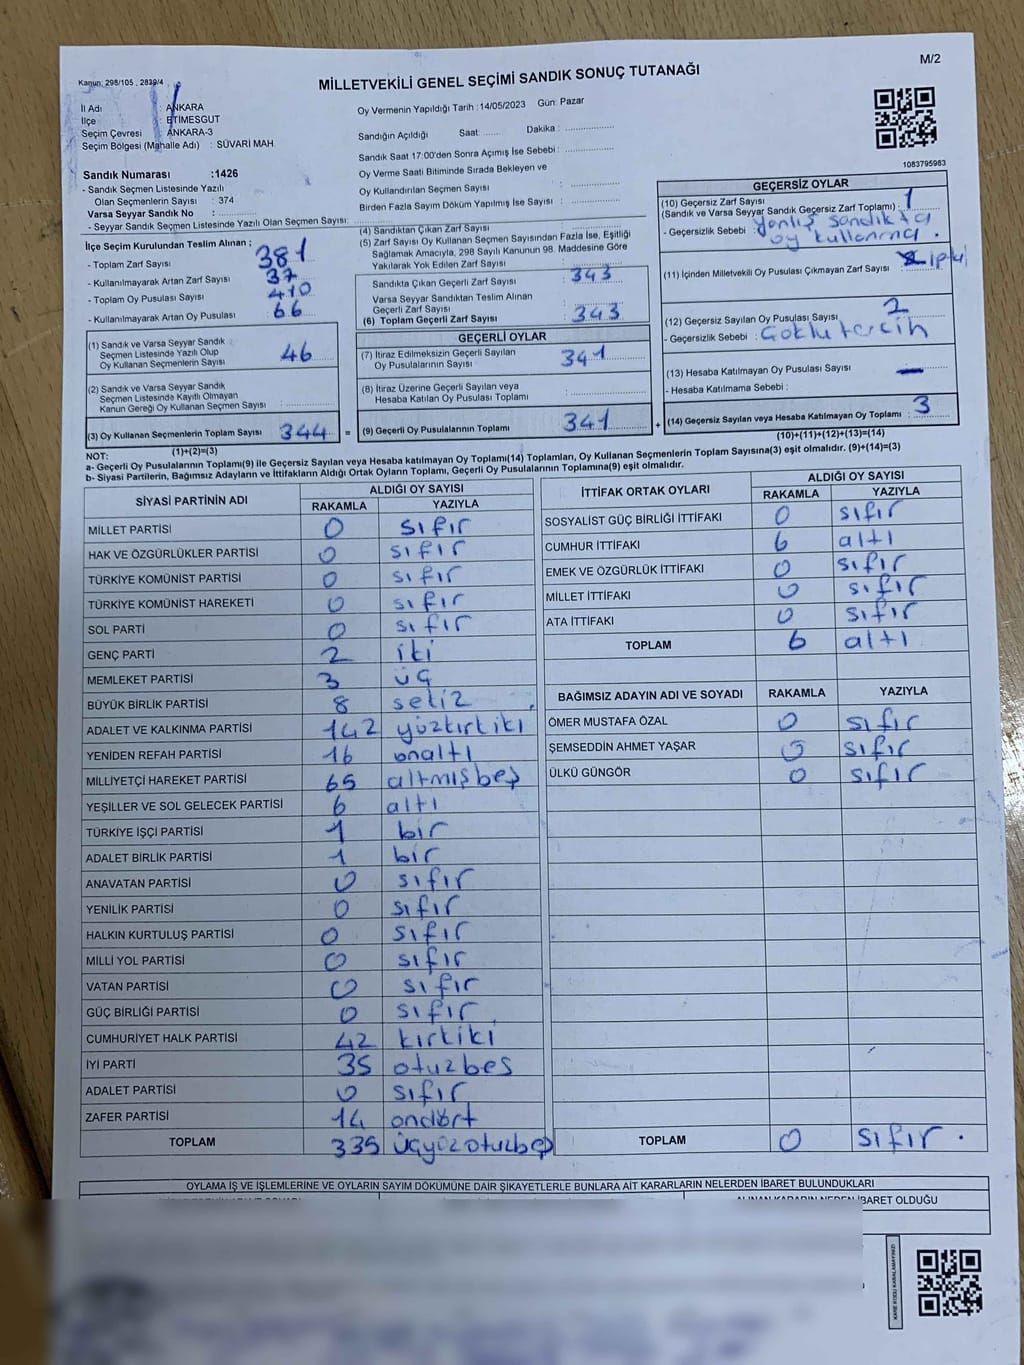 M/2
Kanun: 298/105 , 2839/4
MİLLETVEKİLİ GENEL SEÇİMİ SANDIK SONUÇ TUTANAĞI
İl Adı : ANKARA
İlçe : ETİMESGUT
Seçim Çevresi : ANKARA-3
Seçim Bölgesi (Mahalle Adı) : SÜVARİ MAH.
Sandık Numarası :1426
- Sandık Seçmen Listesinde Yazılı
Olan Seçmenlerin Sayısı : 374
Varsa Seyyar Sandık No :
- Seyyar Sandık Seçmen Listesinde Yazılı Olan Seçmen Sayısı:
İlçe Seçim Kurulundan Teslim Alınan ;
- Toplam Zarf Sayısı : 381
- Kullanılmayarak Artan Zarf Sayısı : 37
- Toplam Oy Pusulası Sayısı : 410
- Kullanılmayarak Artan Oy Pusulası : 66
(1) Sandık ve Varsa Seyyar Sandık
Seçmen Listesinde Yazılı Olup
Oy Kullanan Seçmenlerin Sayısı : 46
(2) Sandık ve Varsa Seyyar Sandık
Seçmen Listesinde Kayıtlı Olmayan
Kanun Gereği Oy Kullanan Seçmen Sayısı :
(3) Oy Kullanan Seçmenlerin Toplam Sayısı : 344 =
(1)+(2)=(3)
Oy Vermenin Yapıldığı Tarih :14/05/2023 Gün: Pazar
Sandığın Açıldığı Saat: Dakika :
Sandık Saat 17:00'den Sonra Açımış İse Sebebi :
Oy Verme Saati Bitiminde Sırada Bekleyen ve
Oy Kullandırılan Seçmen Sayısı :
Birden Fazla Sayım Döküm Yapılmış İse Sayısı :
(4) Sandıktan Çıkan Zarf Sayısı :
(5) Zarf Sayısı Oy Kullanan Seçmen Sayısından Fazla İse, Eşitliği
Sağlamak Amacıyla, 298 Sayılı Kanunun 98. Maddesine Göre
Yakılarak Yok Edilen Zarf Sayısı :
Sandıkta Çıkan Geçerli Zarf Sayısı : 343
Varsa Seyyar Sandıktan Teslim Alınan
Geçerli Zarf Sayısı :
(6) Toplam Geçerli Zarf Sayısı : 343
GEÇERLİ OYLAR
(7) İtiraz Edilmeksizin Geçerli Sayılan
Oy Pusulalarının Sayısı : 341
(8) İtiraz Üzerine Geçerli Sayılan veya
Hesaba Katılan Oy Pusulası Toplamı :
(9) Geçerli Oy Pusulalarının Toplamı : 341 +
1083795983
GEÇERSİZ OYLAR
(10) Geçersiz Zarf Sayısı : 1
(Sandık ve Varsa Seyyar Sandık Geçersiz Zarf Toplamı)
- Geçersizlik Sebebi : yanlış sandıkta
oy kullanma .
(11) İçinden Milletvekili Oy Pusulası Çıkmayan Zarf Sayısı :
(12) Geçersiz Sayılan Oy Pusulası Sayısı : 2
- Geçersizlik Sebebi : Çoklu tercih
(13) Hesaba Katılmayan Oy Pusulası Sayısı : —
- Hesaba Katılmama Sebebi :
(14) Geçersiz Sayılan veya Hesaba Katılmayan Oy Toplamı : 3
(10)+(11)+(12)+(13)=(14)
NOT:
a- Geçerli Oy Pusulalarının Toplamı(9) ile Geçersiz Sayılan veya Hesaba katılmayan Oy Toplamı(14) Toplamları, Oy Kullanan Seçmenlerin Toplam Sayısına(3) eşit olmalıdır. (9)+(14)=(3)
b- Siyasi Partilerin, Bağımsız Adayların ve İttifakların Aldığı Ortak Oyların Toplamı, Geçerli Oy Pusulalarının Toplamına(9) eşit olmalıdır.
SİYASİ PARTİNİN ADI ALDIĞI OY SAYISI
RAKAMLA YAZIYLA
MİLLET PARTİSİ 0 sıfır
HAK VE ÖZGÜRLÜKLER PARTİSİ 0 sıfır
TÜRKİYE KOMÜNİST PARTİSİ 0 sıfır
TÜRKİYE KOMÜNİST HAREKETİ 0 sıfır
SOL PARTİ 0 sıfır
GENÇ PARTİ 2 iki
MEMLEKET PARTİSİ 3 üç
BÜYÜK BİRLİK PARTİSİ 8 sekiz
ADALET VE KALKINMA PARTİSİ 142 yüzkırkiki
YENİDEN REFAH PARTİSİ 16 onaltı
MİLLİYETÇİ HAREKET PARTİSİ 65 altmışbeş
YEŞİLLER VE SOL GELECEK PARTİSİ 6 altı
TÜRKİYE İŞÇİ PARTİSİ 1 bir
ADALET BİRLİK PARTİSİ 1 bir
ANAVATAN PARTİSİ 0 sıfır
YENİLİK PARTİSİ 0 sıfır
HALKIN KURTULUŞ PARTİSİ 0 sıfır
MİLLİ YOL PARTİSİ 0 sıfır
VATAN PARTİSİ 0 sıfır
GÜÇ BİRLİĞİ PARTİSİ 0 sıfır
CUMHURİYET HALK PARTİSİ 42 kırkiki
İYİ PARTİ 35 otuzbeş
ADALET PARTİSİ 0 sıfır
ZAFER PARTİSİ 14 ondört
TOPLAM 335 üçyüzotuzbeş
İTTİFAK ORTAK OYLARI ALDIĞI OY SAYISI
RAKAMLA YAZIYLA
SOSYALİST GÜÇ BİRLİĞİ İTTİFAKI 0 sıfır
CUMHUR İTTİFAKI 6 altı
EMEK VE ÖZGÜRLÜK İTTİFAKI 0 sıfır
MİLLET İTTİFAKI 0 sıfır
ATA İTTİFAKI 0 sıfır
TOPLAM 6 altı
BAĞIMSIZ ADAYIN ADI VE SOYADI RAKAMLA YAZIYLA
ÖMER MUSTAFA ÖZAL 0 sıfır
ŞEMSEDDİN AHMET YAŞAR 0 sıfır
ÜLKÜ GÜNGÖR 0 sıfır
TOPLAM 0 sıfır .
OYLAMA İŞ VE İŞLEMLERİNE VE OYLARIN SAYIM DÖKÜMÜNE DAİR ŞİKAYETLERLE BUNLARA AİT KARARLARIN NELERDEN İBARET BULUNDUKLARI
ALINAN KARARIN NEDEN İBARET OLDUĞU
KARE KODU KARALAMAYINIZ!